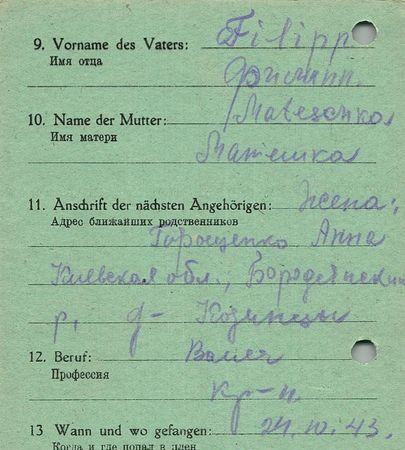 9. Vorname des Vaters: Filipp
Имя отца Филипп.
10. Name der Mutter: Mateschka
Имя матери Матешка
11. Anschrift der nächsten Angehörigen: Жена:
Адрес ближайших родственников
Горощенко Анна
Киевская обл., Бородянский
р, д- Козинцы
12. Beruf: Bauer
Профессия
кр-н.
13 Wann und wo gefangen: 24.10.43.
Когда и где попал в плен